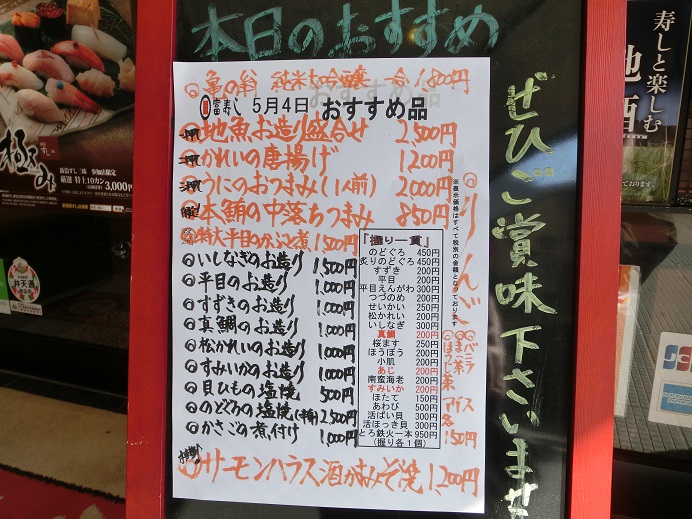 本日のおすすめ
亀の翁 純米大吟醸 一合1,800円
富寿し 5月4日 おすすめ品
地魚お造り盛合せ 2,500円
かれいの唐揚げ 1,200円
うにのおつまみ(1人前) 2,000円
本鮪の中落ちつまみ 850円
特大平目のかぶと煮 1,500円
いしなぎのお造り 1,500円
平目のお造り 1,000円
すずきのお造り 1,000円
真鯛のお造り 1,000円
松かれいのお造り 1,000円
すみいかのお造り 1,000円
貝ひもの塩焼 500円
のどぐろの塩焼(半身) 2,500円
かさごの煮付け 1,000円
サーモンハラス酒かすみそ焼 1,200円
『握り一貫』
のどぐろ 450円
炙りのどぐろ 450円
すずき 200円
平目 200円
平目えんがわ 300円
つづのめ 200円
せいかい 250円
松かれい 200円
いしなぎ 300円
真鯛 200円
桜ます 250円
ほうぼう 200円
小肌 200円
あじ 200円
南蛮海老 200円
すみいか 200円
ほたて 150円
あわび 500円
活ばい貝 300円
活ほっき貝 300円
とろ鉄火一本 950円
(握り各1個)
※表示価格はすべて税別の金額となっております
りんご
バニラ
ほうじ茶
アイス
各150円
ぜひご賞味下さいませ
極み
厳選 特上10カン
3,000円
寿しと楽しむ
地酒
JCB